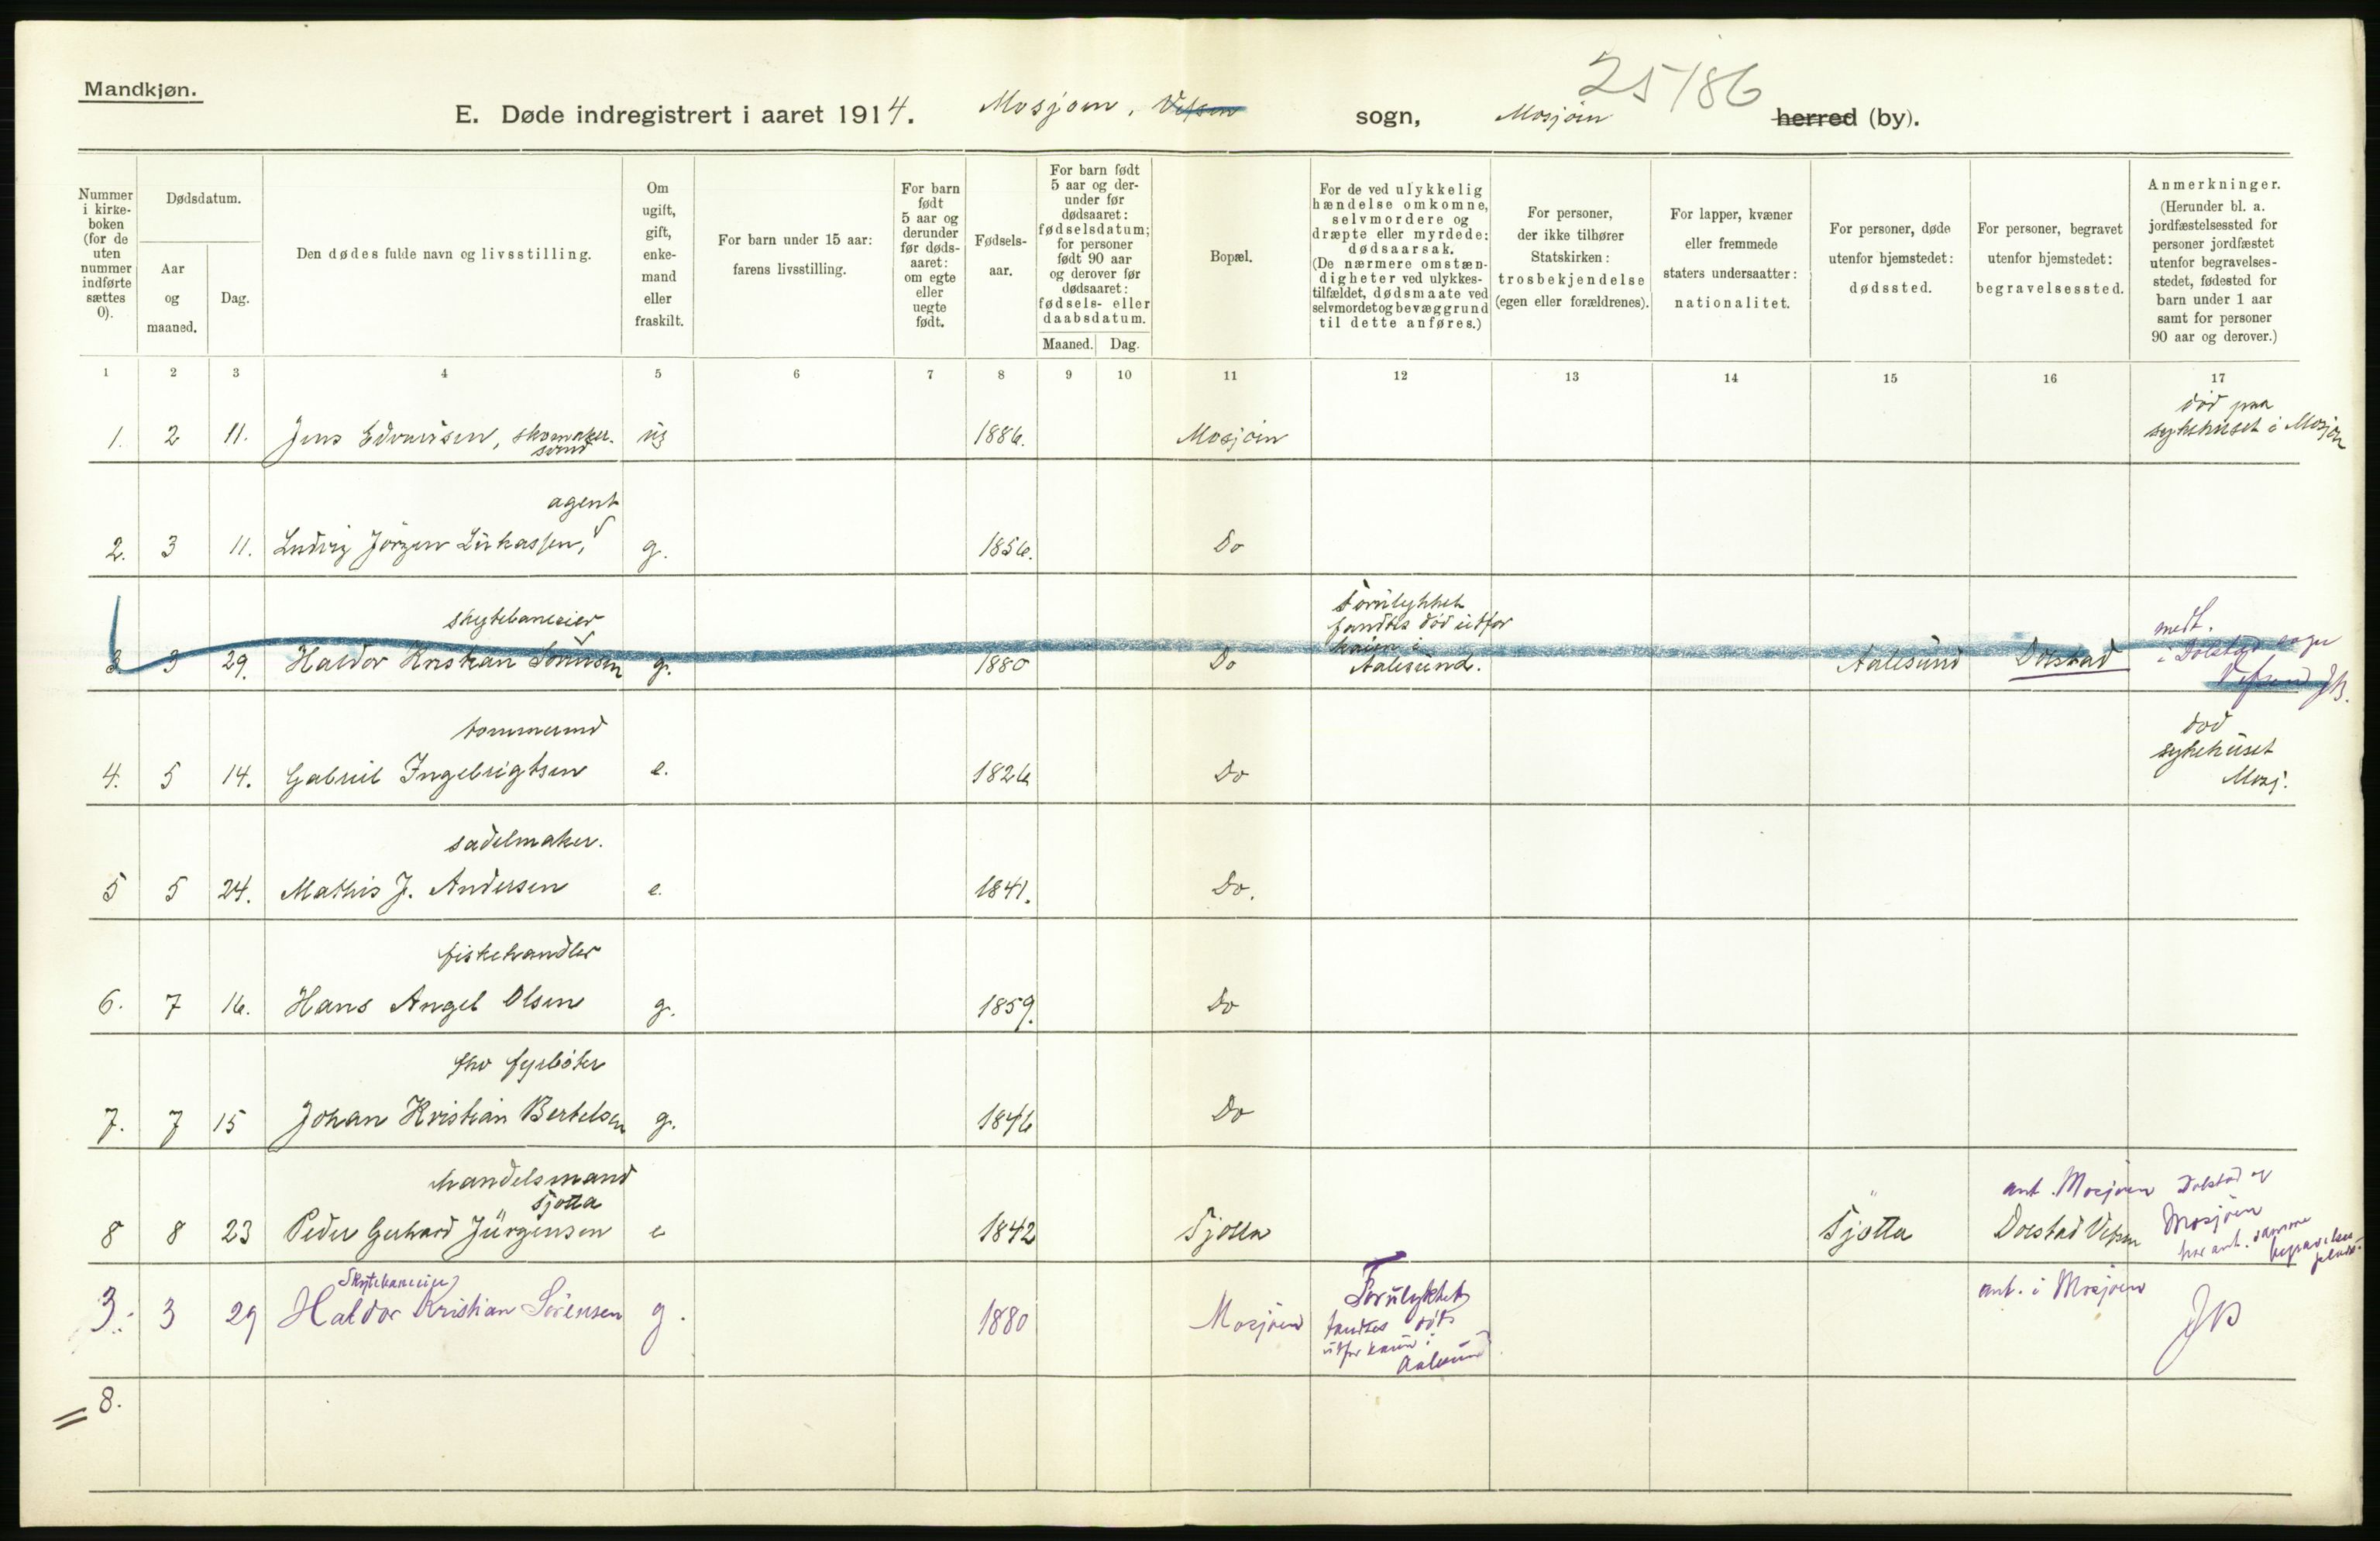 Mandkjøn.
25/86
E. Døde indregistrert i aaret 1914. Mosjøen, Vefsen sogn, Mosjøen herred (by).
Nummer
i kirke-
boken
(for de
uten
nummer
indførte
sættes
0).
Dødsdatum.
Aar
og
maaned.
Dag.
Den dødes fulde navn og livsstilling.
Om
ugift,
gift,
enke-
mand
eller
fraskilt.
For barn under 15 aar:
farens livsstilling.
For barn
født
5 aar og
derunder
før døds-
aaret:
om egte
eller
uegte
født.
Fødsels-
aar.
For barn født
5 aar og der-
under før
dødsaaret:
fødselsdatum;
for personer
født 90 aar
og derover før
dødsaaret:
fødsels- eller
daabsdatum.
Maaned. Dag.
Bopæl.
For de ved ulykkelig
hændelse omkomne,
selvmordere og
dræpte eller myrdede:
dødsaarsak.
(De nærmere omstæn-
digheter ved ulykkes-
tilfældet, dødsmaate ved
selvmordet og bevæggrund
til dette anføres.)
For personer,
der ikke tilhører
Statskirken:
trosbekjendelse
(egen eller forældrenes).
For lapper, kvæner
eller fremmede
staters undersaatter:
nationalitet.
For personer, døde
utenfor hjemstedet:
dødssted.
For personer, begravet
utenfor hjemstedet:
begravelsessted.
Anmerkninger.
(Herunder bl. a.
jordfæstelsessted for
personer jordfæstet
utenfor begravelses-
stedet, fødested for
barn under 1 aar
samt for personer
90 aar og derover.)
1 2 3 4 5 6 7 8 9 10 11 12 13 14 15 16 17
død paa
sykehuset i Mosjøen
1. 2 11. Jens Edvardsen, skomaker- ug 1886. Mosjøen
svend
agent
2. 3 11. Ludvig Jørgen Lukassen, g. 1856. Do
skytebaneeier
Forulykket
fandtes død utfor
kaien i
Aalesund.
3. 3 29. Haldor Kristian Sørensen g. 1880 Do Aalesund Dolstad
medt.
i Dolstad sogn
Vefsend JB.
tømmermd
4. 5 14. Gabriel Ingebrigtsen e. 1826 Do
død
sykehuset
Mosj.
sadelmaker.
5 5 24. Mathis J. Andersen e. 1841. Do.
fiskehandler
6. 7 16. Hans Angel Olsen g. 1859. Do
fhv fyrbøter
7. 7 15 Johan Kristian Bertelsen g. 1846 Do
handelsmand
Tjøtta
8 8 23 Peder Gerhard Jürgensen e 1842 Tjøtta Tjøtta
ant. Mosjøen
Dolstad Vefsen
Dolstad og
Mosjøen
har ant. samme
begravelses
plads.
Skytebaneeier
3. 3 29 Haldor Kristian Sørensen g. 1880 Mosjøen
Forulykket
fandtes død
utfor kaien i
Aalesund
ant. i Mosjøen
JB
= 8.